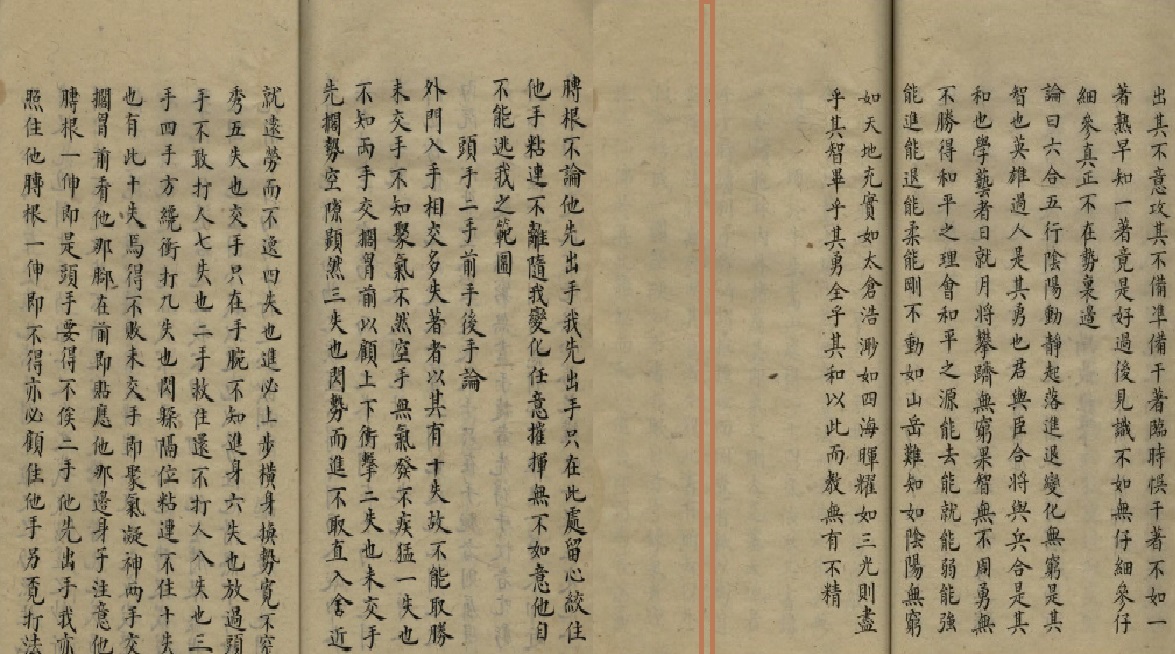 出其不意攻其不備準備千著臨時悞千著不如一
著熟早知一著竟是好過後見識不如無仔細參仔
細參真正不在勢裏邊
論曰六合五行陰陽動靜起落進退變化無窮是其
智也英雄過人是其勇也君與臣合將與兵合是其
和也學藝者日就月將攀躋無窮果智無不周勇無
不勝得和平之理會和平之源能去能就能弱能強
能進能退能柔能剛不動如山岳難知如陰陽無窮
如天地充實如太倉浩渺如四海暉耀如三光則盡
乎其智畢乎其勇全乎其和以此而教無有不精
膊根不論他先出手我先出手只在此處留心絞住
他手粘連不離隨我變化任意摧揮無不如意他自
不能逃我之範圍
頭手二手前手後手論
外門入手相交多失著者以其有十失故不能取勝
未交手不知聚氣不然空手無氣發不疾猛一失也
不知兩手交擱胷前以顧上下衝擊二失也未交手
先擱勢空隙顯然三失也閃勢而進不取直入舍近
就遠勞而不逸四失也進必上步橫身換勢寬不窄
秀五失也交手只在手腕不知進身六失也放過頭
手不敢打人七失也二手救住還不打人八失也三
手四手方纔衝打九失也閃躲隔位粘連不住十失
也有此十失焉得不敗未交手即聚氣凝神兩手交
擱胷前看他那腳在前即點應他那邊身子注意他
膊根一伸即是頭手要得不俟二手他先出手我亦
照住他膊根一伸即不得亦必顧住他手另覓打法